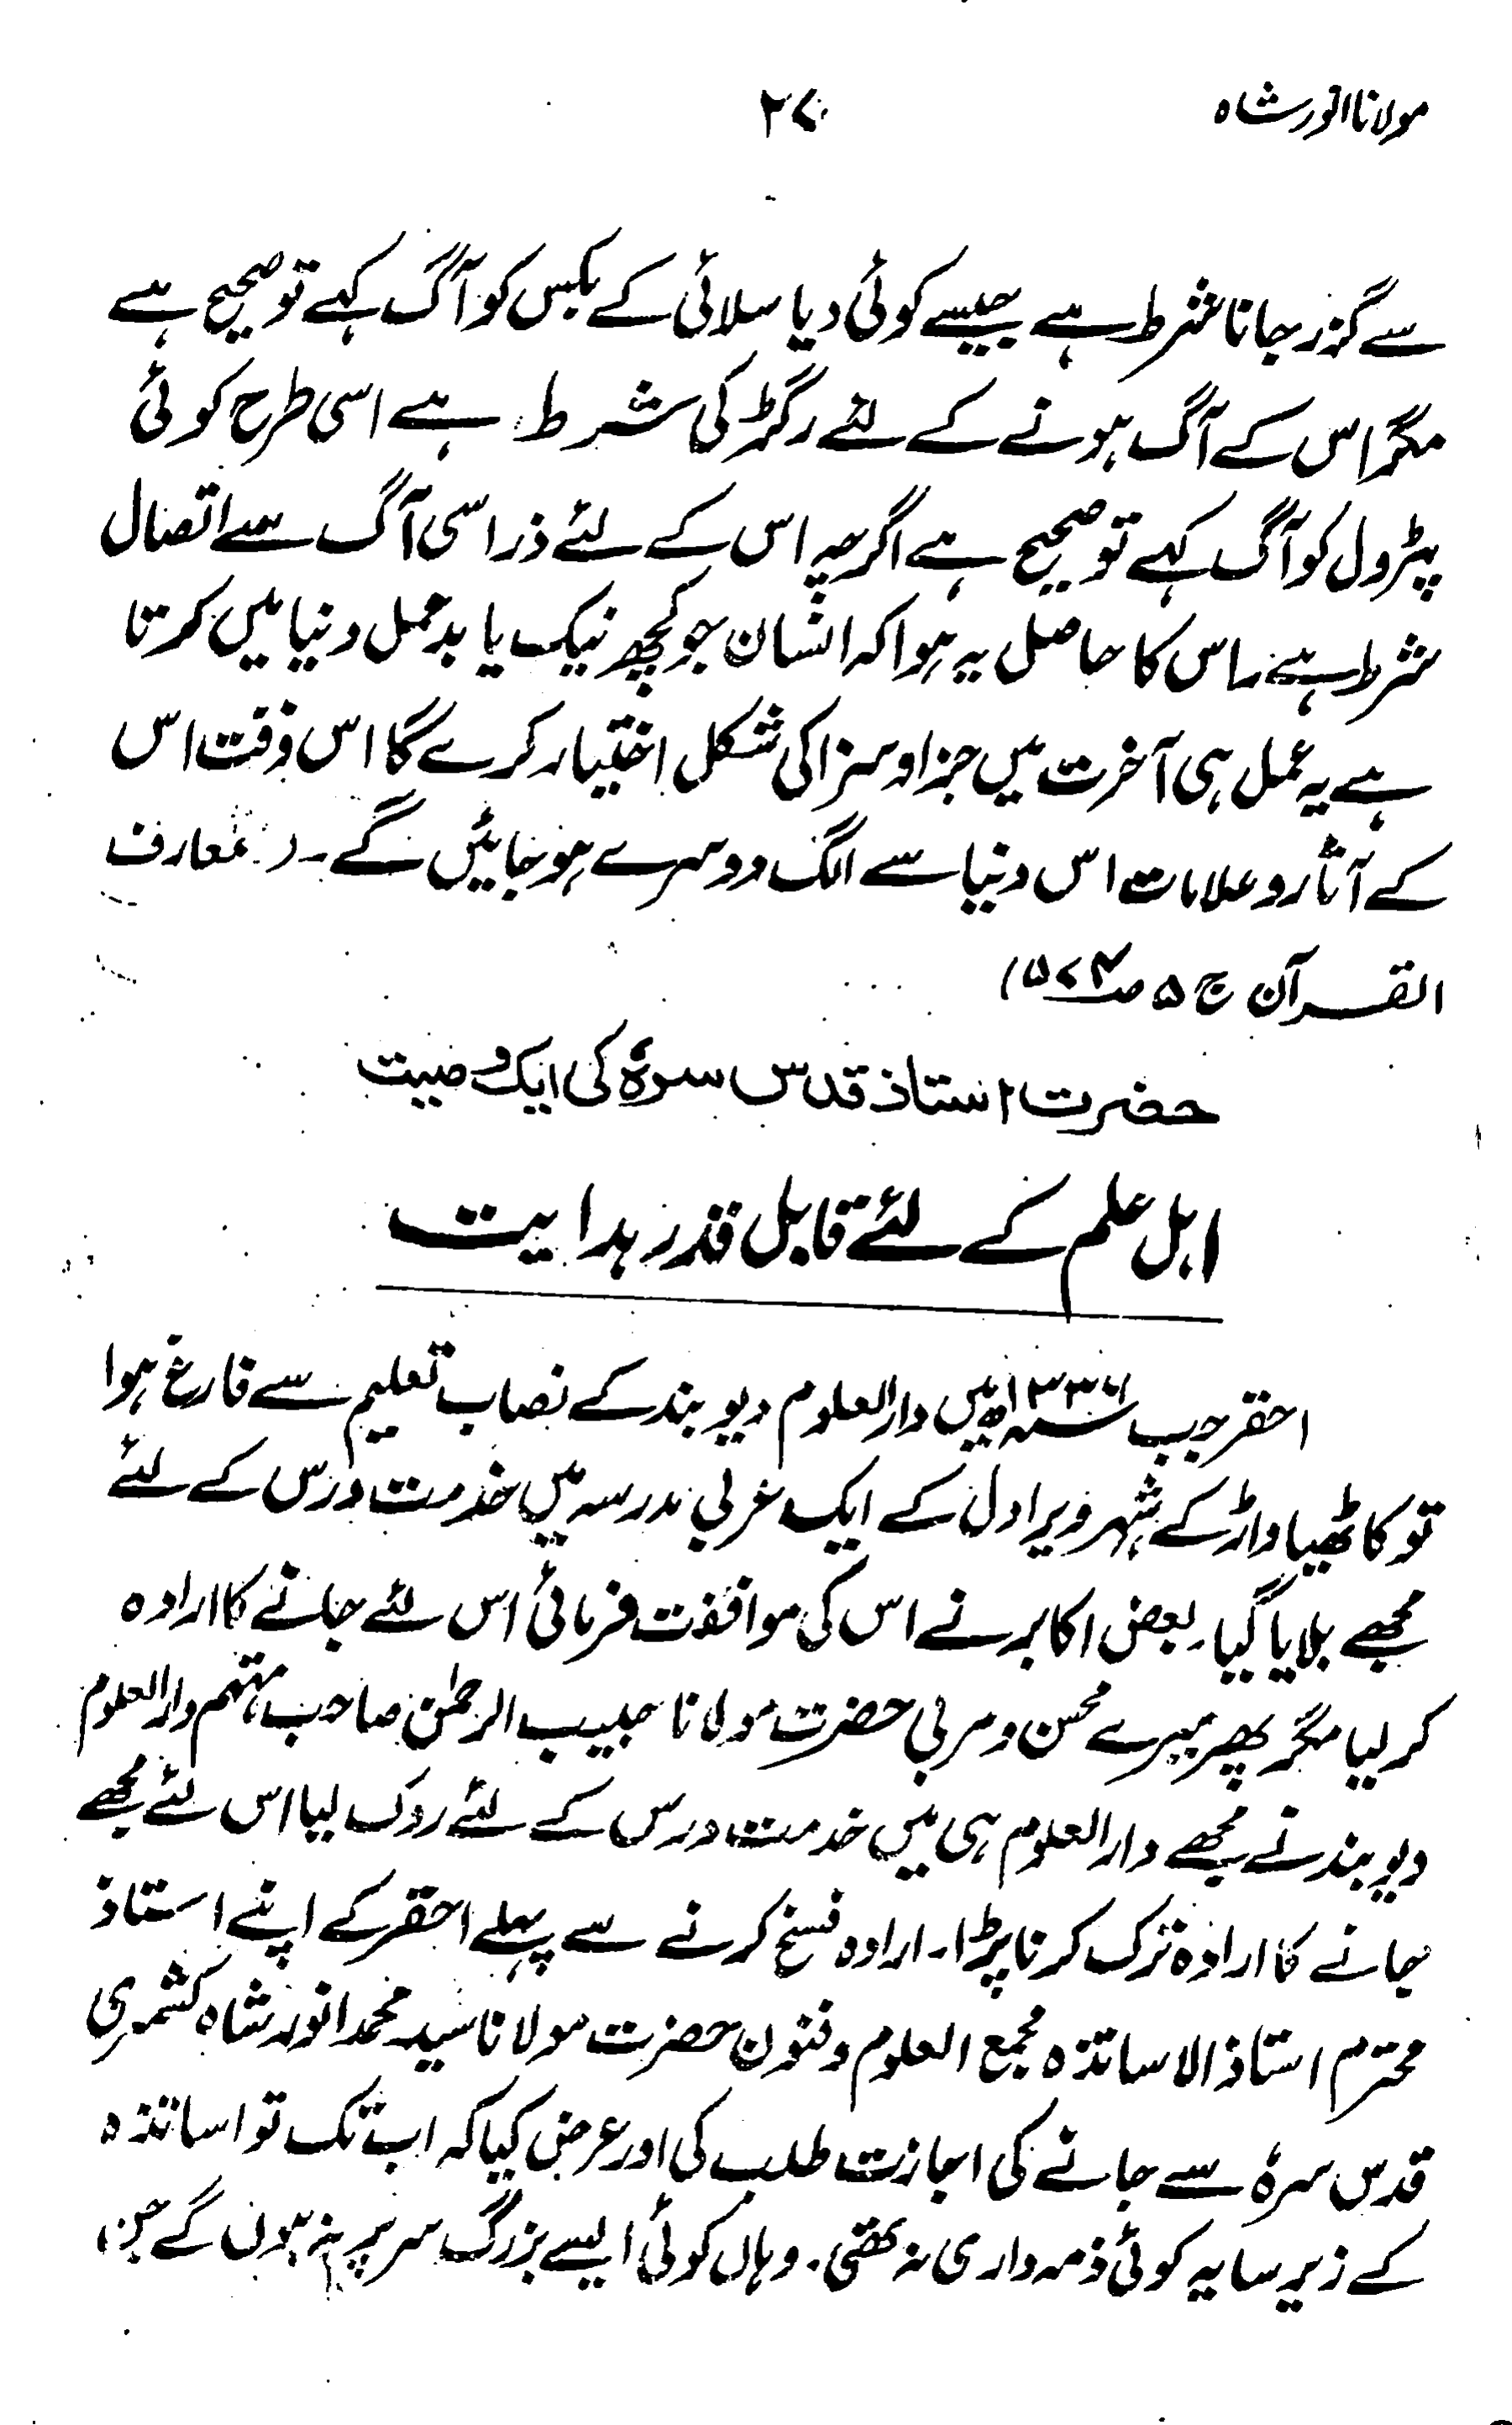 مولانا انور شاہ
۲۷
سے گزر جانا شرط ہے جیسے کوئی دیا سلائی کے بکس کو آگ کہے تو صحیح ہے
مگر اس کے آگ ہونے کے لئے رگڑ کی شرط ہے اسی طرح کوئی
پٹرول کو آگ کہے تو صحیح ہے اگرچہ اس کے لئے ذرا سی آگ سے اتصال
شرط ہے۔ اس کا حاصل یہ ہوا کہ انسان جو کچھ نیک یا بد عمل دنیا میں کرتا
ہے یہ عمل ہی آخرت میں جزا و سزا کی شکل اختیار کرے گا اس وقت اس
کے آثار و علامات اس دنیا سے الگ دوسرے ہو جائیں گے۔ (معارف
القرآن ج ۵ ص ۵۷۴)
حضرت استاذ قدس سرہٗ کی ایک وصیت
اہل علم کے لئے قابل قدر ہدایت
احقر جب ۱۳۳۶ھ میں دارالعلوم دیوبند کے نصاب تعلیم سے فارغ ہوا
تو کاٹھیاواڑ کے شہر ویراول کے ایک عربی مدرسہ میں خدمت درس کے لئے
مجھے بلایا گیا۔ بعض اکابر نے اس کی موافقت فرمائی اس لئے جانے کا ارادہ
کر لیا مگر پھر میرے محسن و مربی حضرت مولانا حبیب الرحمٰن صاحب مہتمم دارالعلوم
دیوبند نے مجھے دارالعلوم ہی میں خدمت درس کے لئے روک لیا اس لئے مجھے
جانے کا ارادہ ترک کرنا پڑا۔ ارادہ فسخ کرنے سے پہلے احقر کے اپنے استاذ
محترم استاذ الاساتذہ مجمع العلوم و فنون حضرت مولانا سید محمد انور شاہ کشمیری
قدس سرہٗ سے جانے کی اجازت طلب کی اور عرض کیا کہ اب تک تو اساتذہ
کے زیر سایہ کوئی ذمہ داری نہ تھی۔ وہاں کوئی ایسے بزرگ سر پر نہ ہوں گے جن